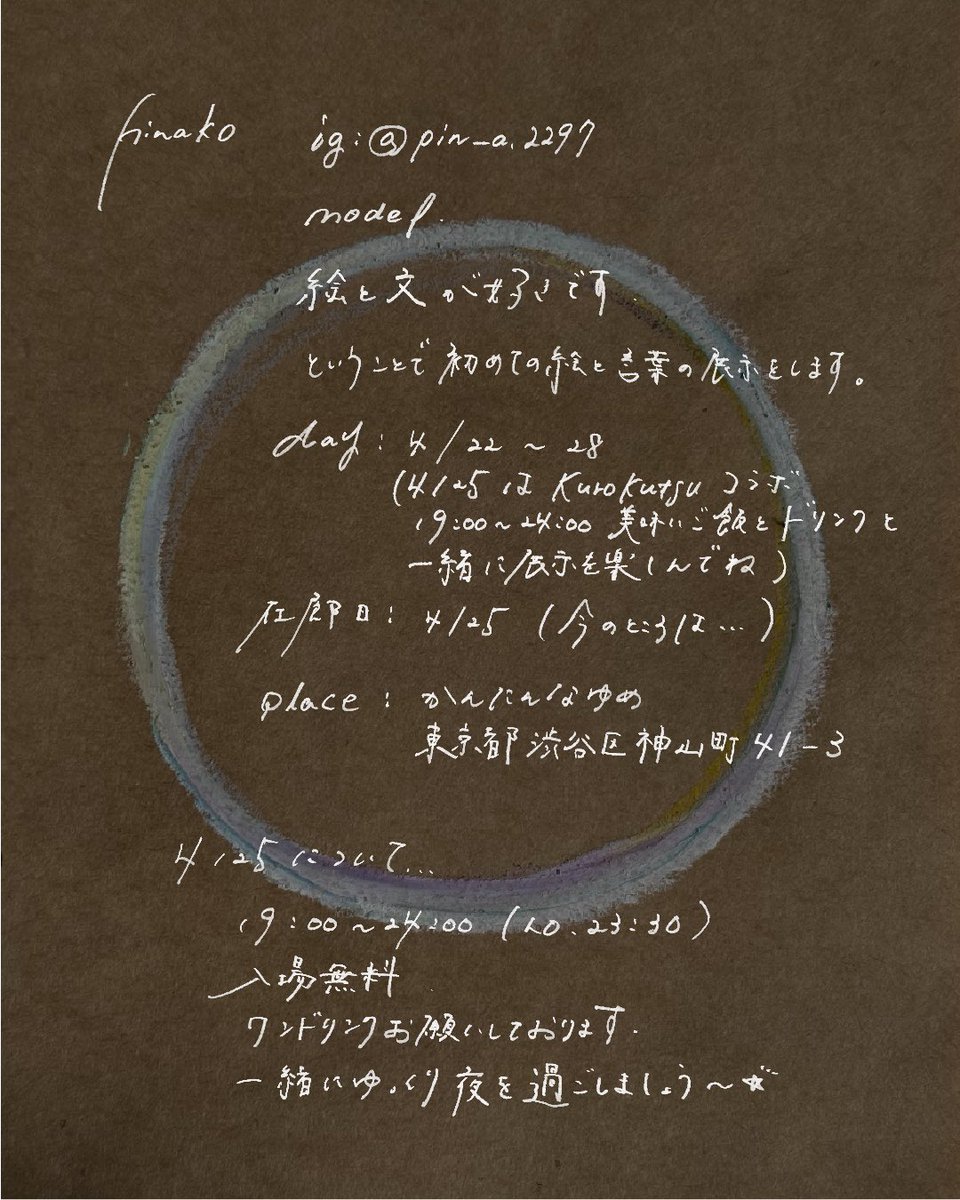 hinako ig:@pin_a.2297
model.
絵と文が好きです
ということで初めての絵と言葉の展示をします。
day: 4/22〜28
(4/25は Kurokutsu コラボ
19:00〜24:00 美味いご飯とドリンクと
一緒に展示を楽しんでね)
在廊日: 4/25 (今のところは…)
place: かんにんなゆめ
東京都渋谷区神山町41-3
4/25について…
19:00〜24:00 (LO.23:30)
入場無料
ワンドリンクお願いしております.
一緒にゆっくり夜を過ごしましょう〜☆